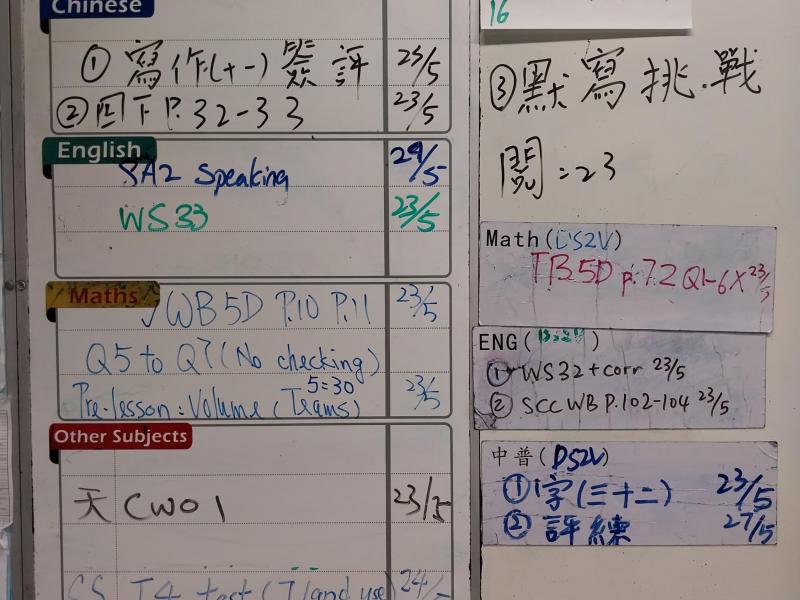 Chinese
① 寫作(十一) 簽 評 23/5
② 四下 P.32-33 23/5
English
SA2 Speaking 24/5
WS33 23/5
Maths
WB5D P.10 P.11 23/5
Q5 to Q7 (No checking)
5=30
Pre-lesson: Volume (Teams) 23/5
Other Subjects
天 CW01 23/5
T4 test (7/land use) 24/5
16
③ 默寫挑戰
閱=23
Math(DS2V)
TB5D p.72 Q1-6X 23/5
ENG( )
① WS32+corr 23/5
② SCC WB P.102-104 23/5
中普(DS2V)
① 字(三十二) 23/5
② 評練 27/5